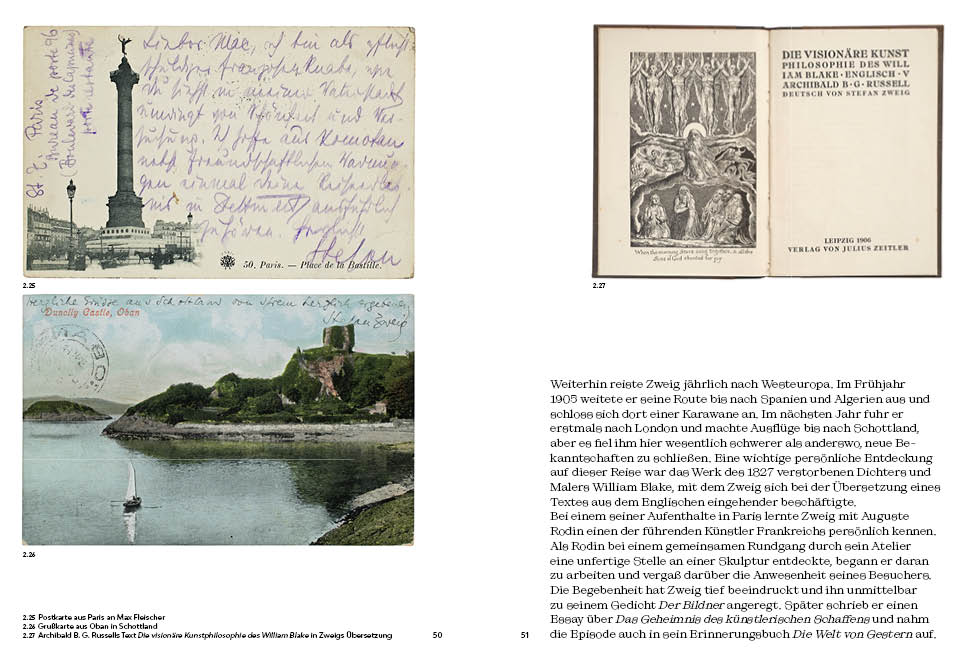 St. Z. Paris
Bureau de poste 96
(Boulevard des Capucines)
poste restante
Lieber Mac, ich bin als
von Schönheit und
Stefan
50. Paris. — Place de la Bastille.
2.25
Herzliche Grüsse aus Schottland von Ihrem herzlich ergebenen
Stefan Zweig
Dunolly Castle, Oban
2.26
2.25 Postkarte aus Paris an Max Fleischer
2.26 Grußkarte aus Oban in Schottland
2.27 Archibald B. G. Russells Text Die visionäre Kunstphilosophie des William Blake in Zweigs Übersetzung
50
When the morning Stars sang together, & all the
Sons of God shouted for joy
DIE VISIONÄRE KUNST
PHILOSOPHIE DES WILL
IAM BLAKE · ENGLISCH · V
ARCHIBALD B · G · RUSSELL
DEUTSCH VON STEFAN ZWEIG
LEIPZIG 1906
VERLAG VON JULIUS ZEITLER
2.27
Weiterhin reiste Zweig jährlich nach Westeuropa. Im Frühjahr
1905 weitete er seine Route bis nach Spanien und Algerien aus und
schloss sich dort einer Karawane an. Im nächsten Jahr fuhr er
erstmals nach London und machte Ausflüge bis nach Schottland,
aber es fiel ihm hier wesentlich schwerer als anderswo, neue Be-
kanntschaften zu schließen. Eine wichtige persönliche Entdeckung
auf dieser Reise war das Werk des 1827 verstorbenen Dichters und
Malers William Blake, mit dem Zweig sich bei der Übersetzung eines
Textes aus dem Englischen eingehender beschäftigte.
Bei einem seiner Aufenthalte in Paris lernte Zweig mit Auguste
Rodin einen der führenden Künstler Frankreichs persönlich kennen.
Als Rodin bei einem gemeinsamen Rundgang durch sein Atelier
eine unfertige Stelle an einer Skulptur entdeckte, begann er daran
zu arbeiten und vergaß darüber die Anwesenheit seines Besuchers.
Die Begebenheit hat Zweig tief beeindruckt und ihn unmittelbar
zu seinem Gedicht Der Bildner angeregt. Später schrieb er einen
Essay über Das Geheimnis des künstlerischen Schaffens und nahm
die Episode auch in sein Erinnerungsbuch Die Welt von Gestern auf.
51